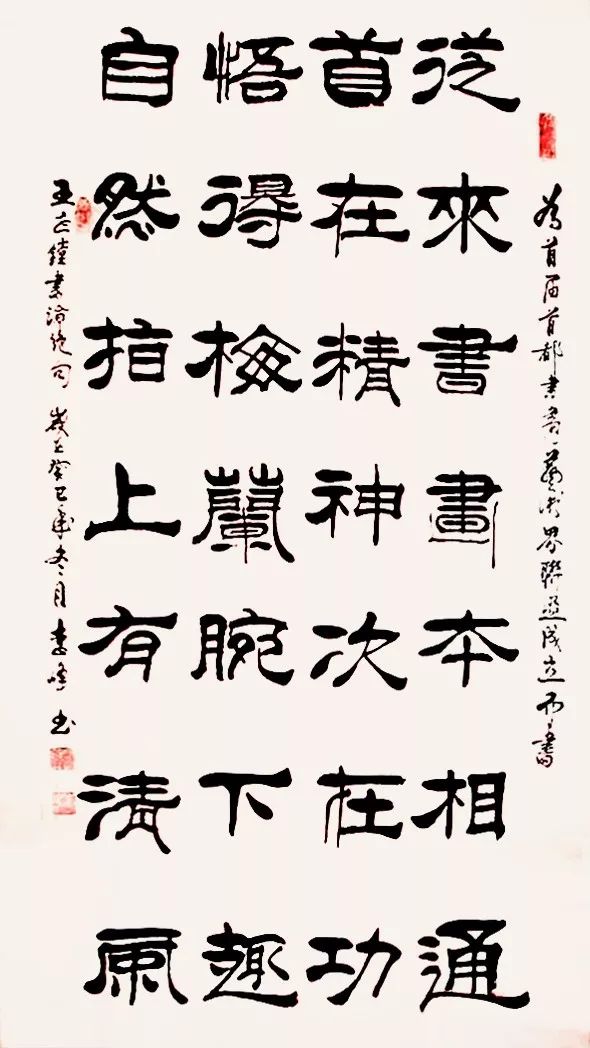 為首屆首都書畫藝術界聯誼成立而書
從來書畫本相通
首在精神次在功
悟得梅蘭腕下趣
自然指上有清風
王 書論絕句 歲在癸巳年冬月 李峰书